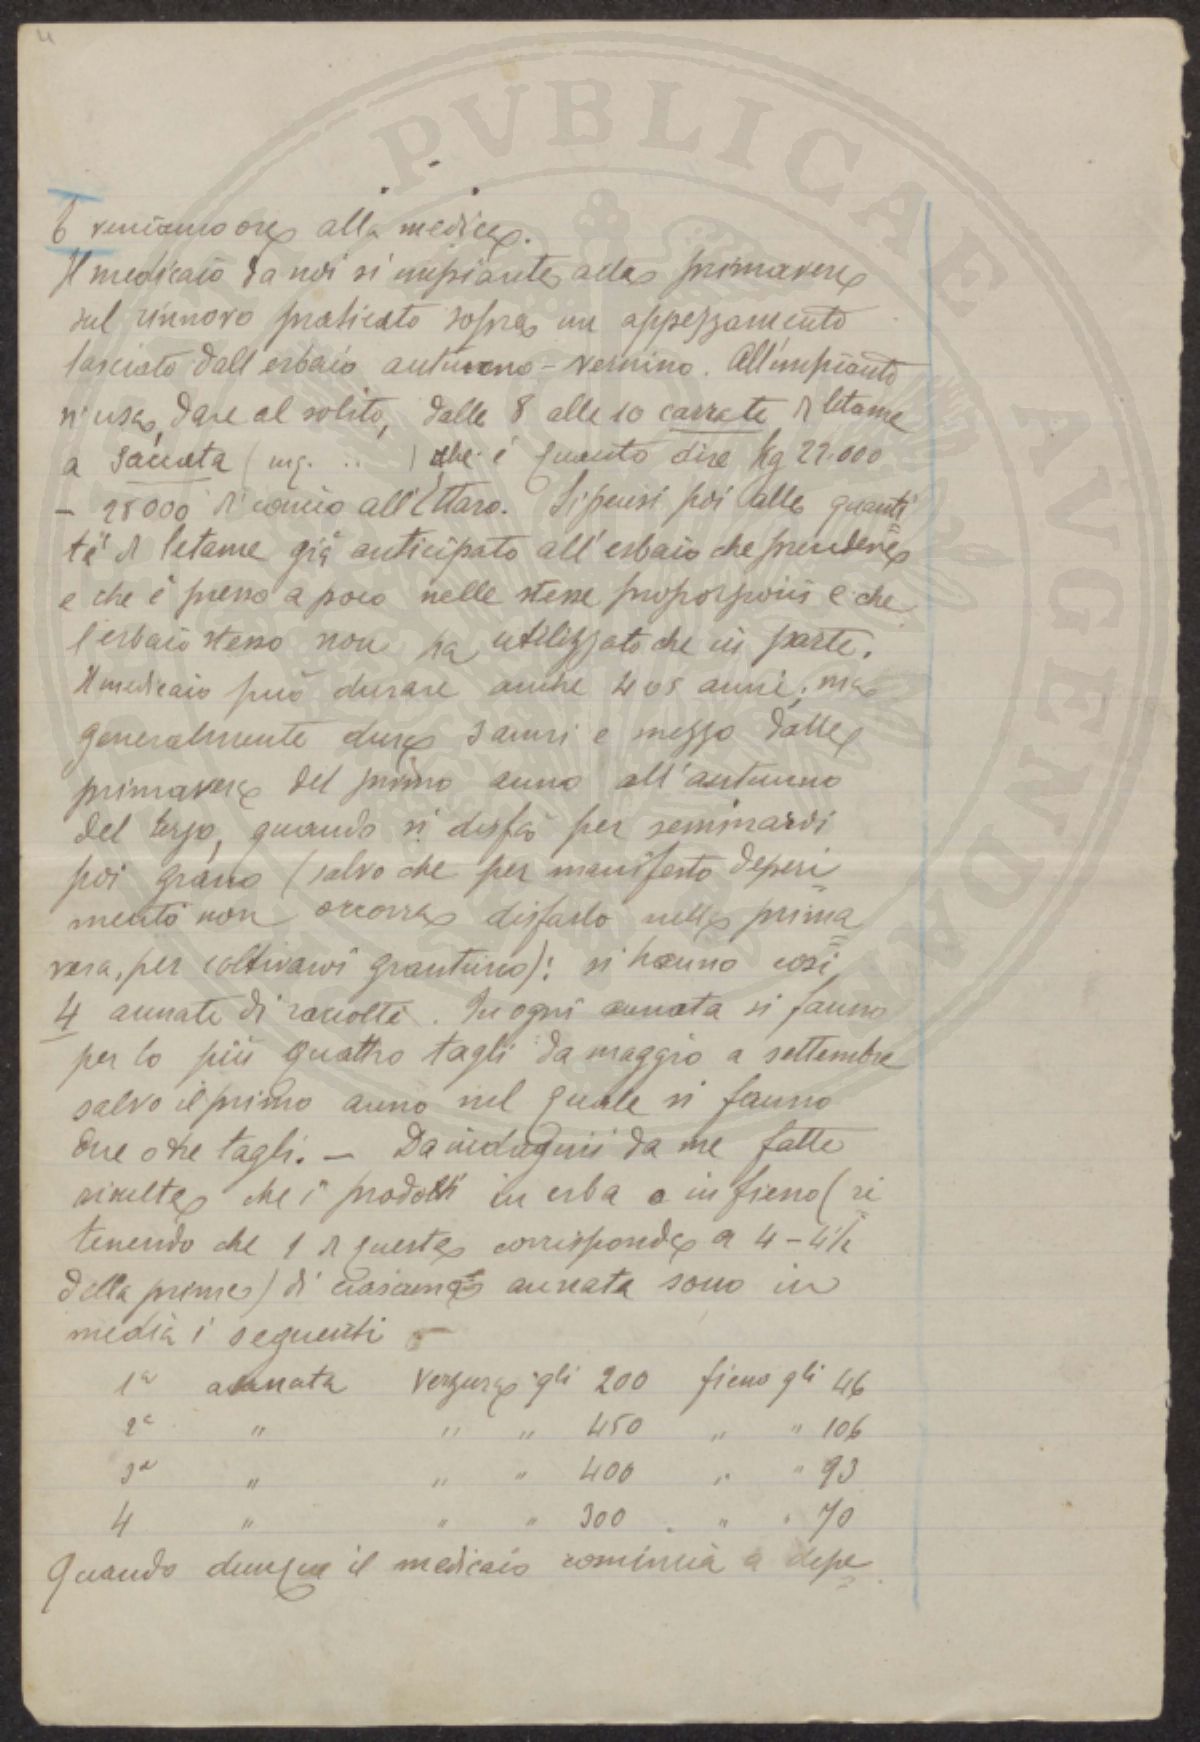 4
E veniamo ora alla medica.
Il medicaio da noi si impianta alla primavera
sul rinnovo praticato sopra un appezzamento
lasciato dall'erbaio autunno-vernino. All'impianto
si usa, dare al solito, dalle 8 alle 10 carrate di letame
a saccata (mq. .. ) che è quanto dire Kg 22.000
- 28000 di concio all'Ettaro. Si pensi poi alla quanti
tà di letame già anticipato all'erbaio che precedeva
e che è presso a poco nelle stesse proporzioni e che
l'erbaio stesso non ha utilizzato che in parte.
Il medicaio può durare anche 4 o 5 anni; ma
generalmente dura 3 anni e mezzo dalla
primavera del primo anno all'autunno
del terzo, quando si disfà per seminarvi
poi grano (salvo che per manifesto deperi
mento non occorra disfarlo nella prima
vera, per coltivarvi granturco): si hanno così
4 annate di raccolte. In ogni annata si fanno
per lo più quattro tagli da maggio a settembre
salvo il primo anno nel quale si fanno
due o tre tagli. - Da indagini da me fatte
risulta che i prodotti in erba o in fieno (ri
tenendo che 1 di questa corrisponda a 4 - 4½
della prima) di ciascuna annata sono in
media i seguenti
1ª annata Verzura qli 200 fieno qli 46
2ª " " " 450 " " 106
3ª " " " 400 " " 93
4 " " " 300 " " 70
Quando dunque il medicaio comincia a depe
PVBLICAE AVGENDAE